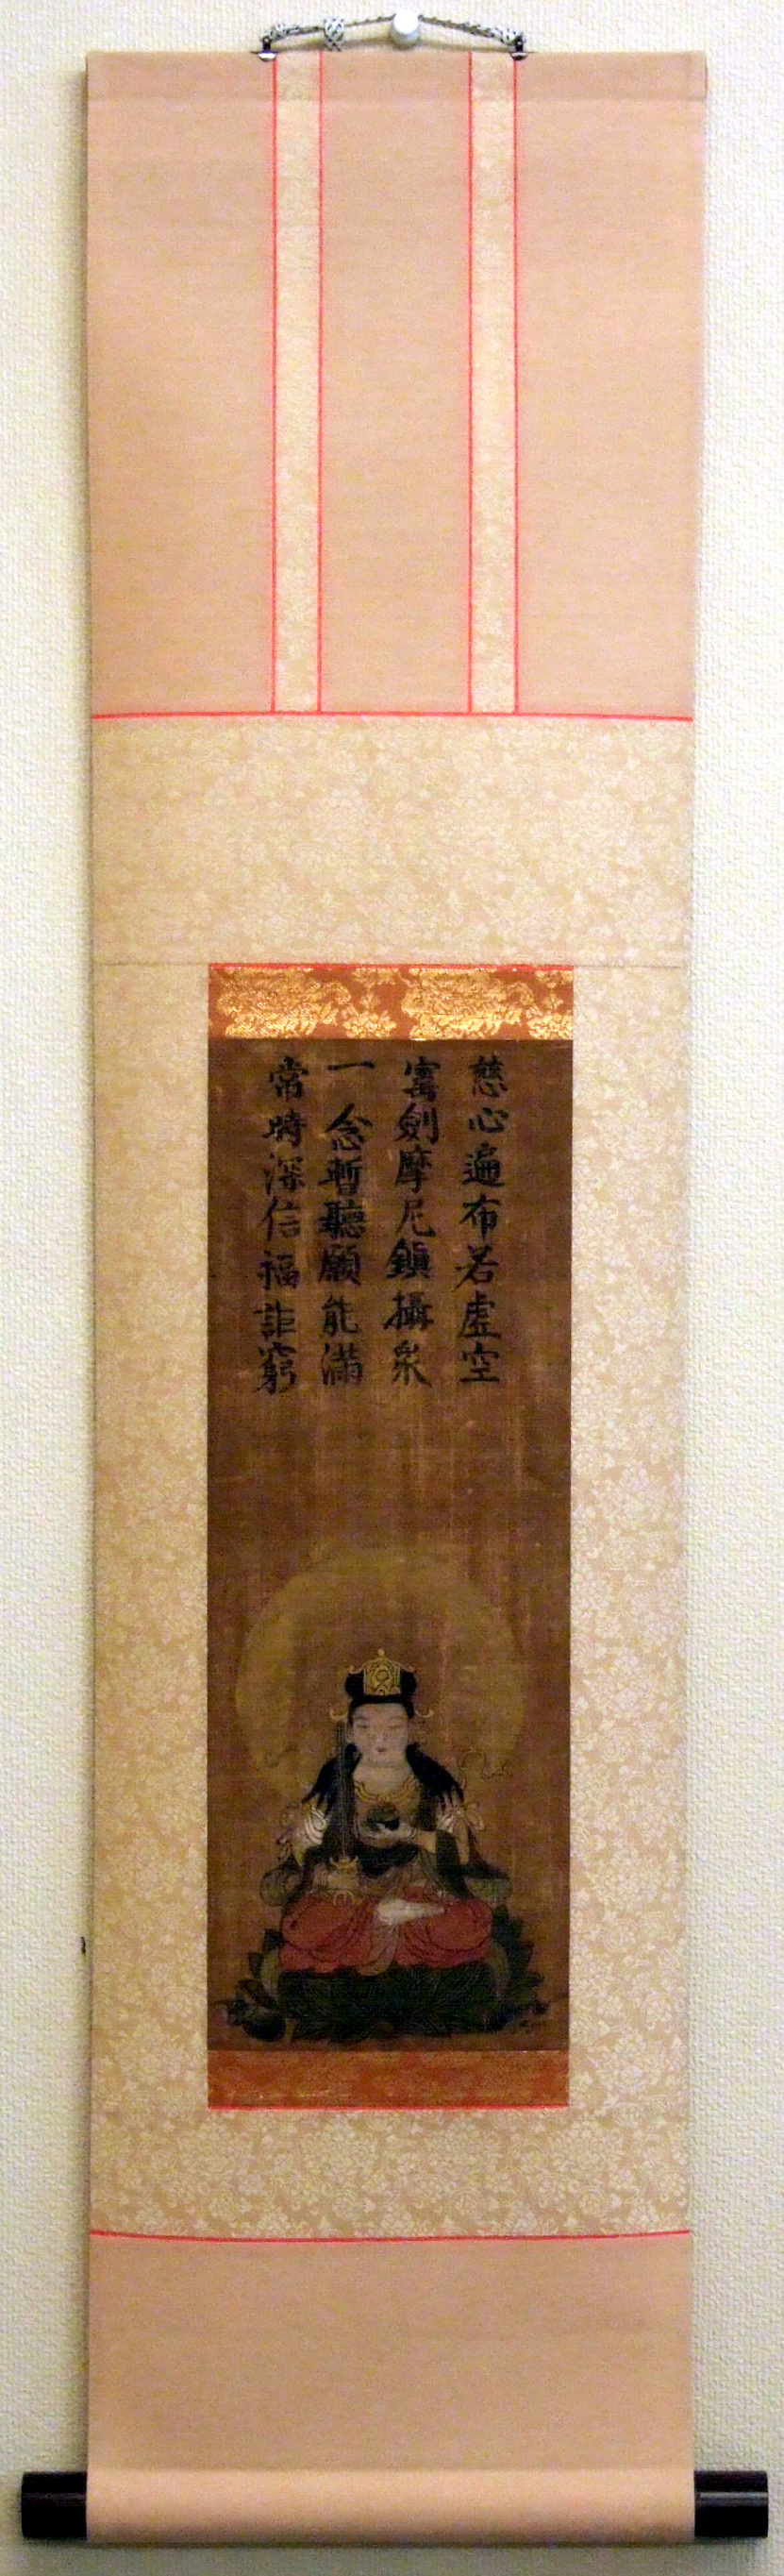 慈心遍布若虚空
寳劍摩尼鎭攝衆
一念暫聽願能滿
常時深信福詎窮